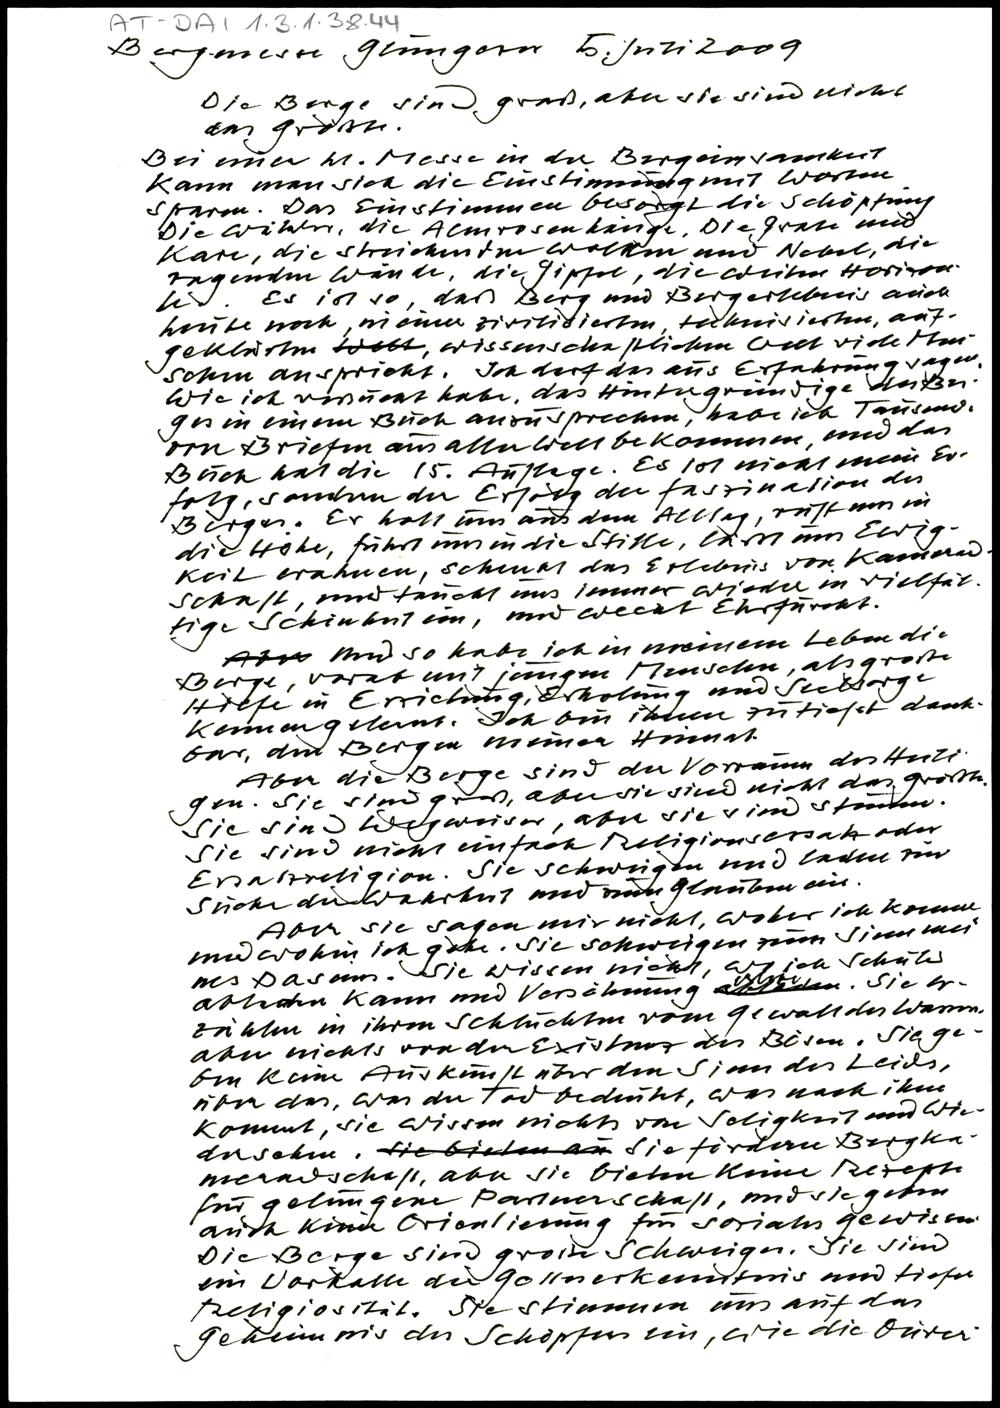 AT-DAI 1.3.1.38.44
Bergmesse Glungezer 5. Juli 2009
Die Berge sind groß, aber sie sind nicht
das Größte.
Bei einer hl. Messe in der Bergeinsamkeit
kann man sich die Einstimmung mit Worten
sparen. Das Einstimmen besorgt die Schöpfung
Die Wälder, die Almrosenhänge, Die Grate und
Kare, die streichenden Wolken und Nebel, die
ragenden Wände, die Gipfel, die weiten Horizon-
te. Es ist so, daß Berg und Bergerlebnis auch
heute noch, in einer zivilisierten, technisierten, auf-
geklärten Welt, wissenschaftlichen Welt viele Men-
schen anspricht. Ich darf das aus Erfahrung sagen.
Wie ich versucht habe, das Hintergründige des Ber-
ges in einem Buch anzusprechen, habe ich Tausend.
von Briefen aus aller Welt bekommen, und das
Buch hat die 15. Auflage. Es ist nicht mein Er-
folg, sondern der Erfolg der Faszination des
Berges. Er holt uns aus dem Alltag, ruft uns in
die Höhe, führt uns in die Stille, lässt uns Ewig-
keit erahnen, schenkt das Erlebnis von Kamerad-
schaft, und taucht uns immer wieder in vielfäl-
tige Schönheit ein, und weckt Ehrfurcht.
Aber Und so habe ich in meinem Leben die
Berge, vorab mit jungen Menschen, als große
Hilfe in Erziehung, Erholung und Seelsorge
kennengelernt. Ich bin ihnen zutiefst dank-
bar, den Bergen meiner Heimat
Aber die Berge sind der Vorraum des Heili
gen. Sie sind groß, aber sie sind nicht das größte.
Sie sind Wegweiser, aber sie sind stumm.
Sie sind nicht einfach Religionsersatz oder
Ersatzreligion. Sie schweigen und laden zur
Suche der Wahrheit und zum Glauben ein.
Aber sie sagen mir nicht, woher ich komme
und wohin ich gehe. Sie schweigen zum Sinn mei
nes Daseins. Sie wissen nicht, wo ich Schuld
abladen kann und Versöhnung. Sie er-
zählen in ihren Schluchten vom Gewalt des Wassers.
aber nichts von der Existenz des Bösen. Sie ge-
ben keine Auskunft über den Sinn des Leids,
über das, was der Tod bedeutet, was nach ihm
kommt, sie wissen nichts von Seligkeit und Wie-
dersehen. Sie bieten an Sie fördern Bergka-
meradschaft, aber sie bieten keine Rezepte
für gelungene Partnerschaft, und sie geben
auch keine Orientierung für soziales gewissen
Die Berge sind große Schweiger. Sie sind
ein Vorhalle der Gotterkenntnis und tiefer
Religiosität. Sie stimmen uns auf das
Geheimnis des Schöpfers ein, wie die